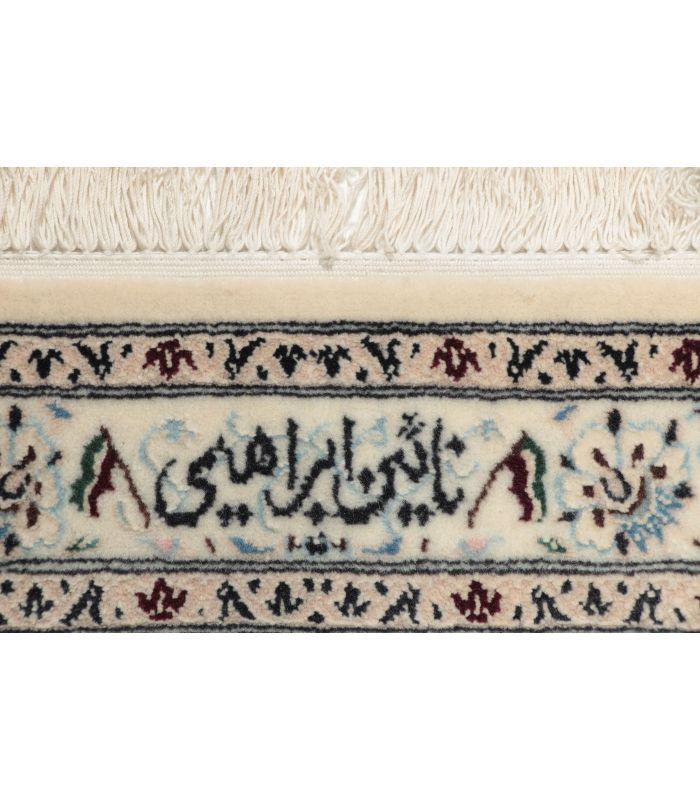 نائین ابراهیمی